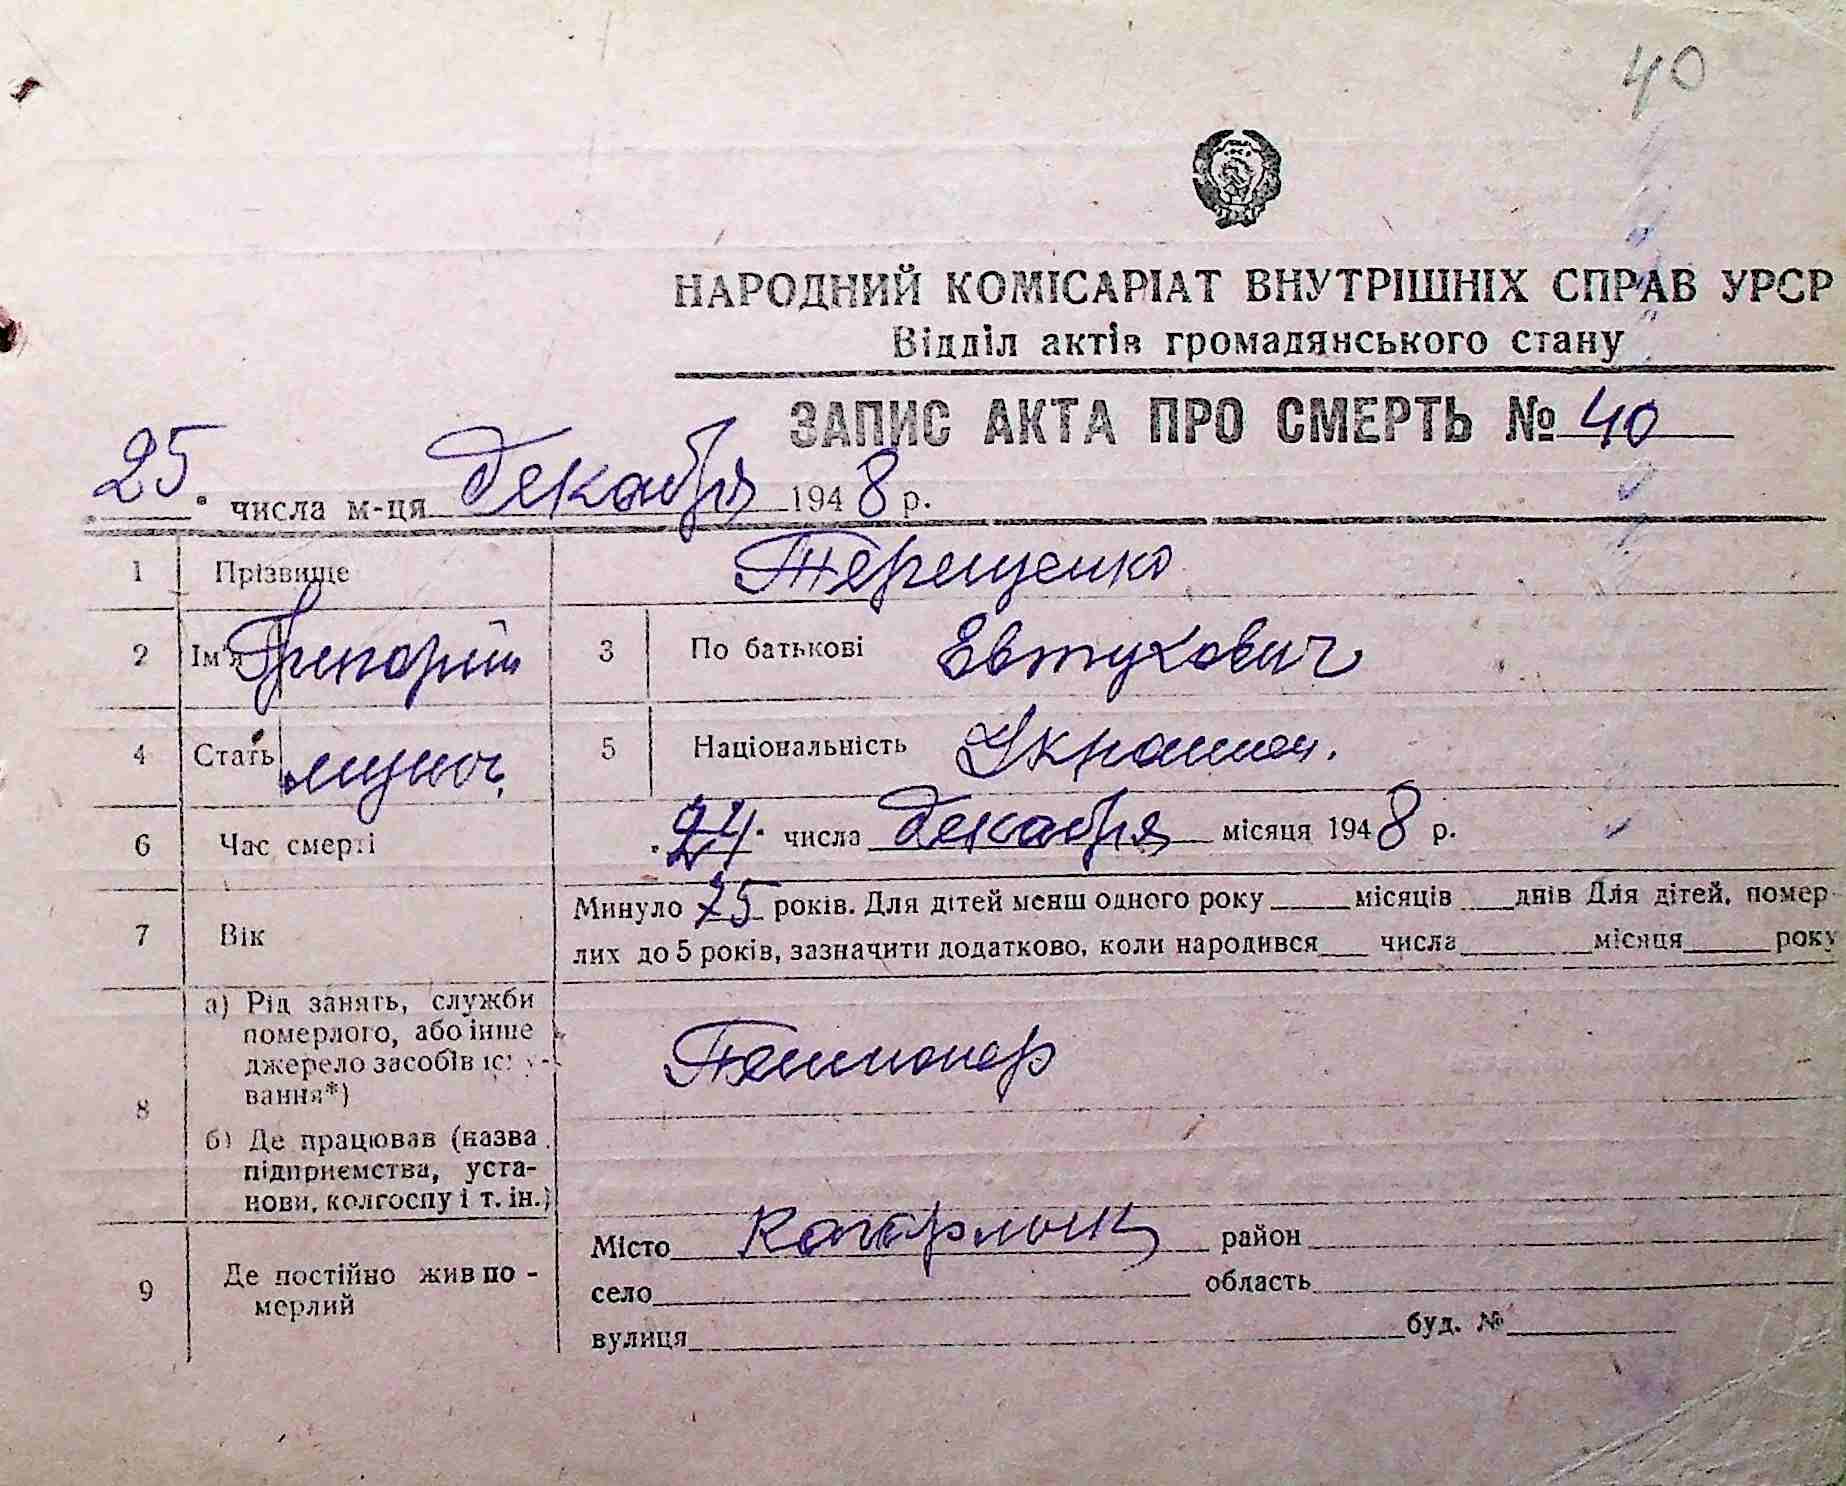 40
НАРОДНИЙ КОМІСАРІАТ ВНУТРІШНІХ СПРАВ УРСР
Відділ актів громадянського стану
ЗАПИС АКТА ПРО СМЕРТЬ № 40
25 числа м-ця декабря 1948 р.
1 Прізвище Терещенко
2 Ім'я Григорий 3 По батькові Евтухович
4 Стать мужч. 5 Національність Украинец.
6 Час смерті 24 числа декабря місяця 1948 р.
7 Вік Минуло 75 років. Для дітей менш одного року місяців днів Для дітей, помер-
лих до 5 років, зазначити додатково, коли народився числа місяця року
8 а) Рід занять, служби
померлого, або інше
джерело засобів існу-
вання*)
Пенсионер
б) Де працював (назва
підприємства, уста-
нови, колгоспу і т. ін.)
9 Де постійно жив по-
мерлий
Місто Кагарлык район
село область
вулиця буд. №